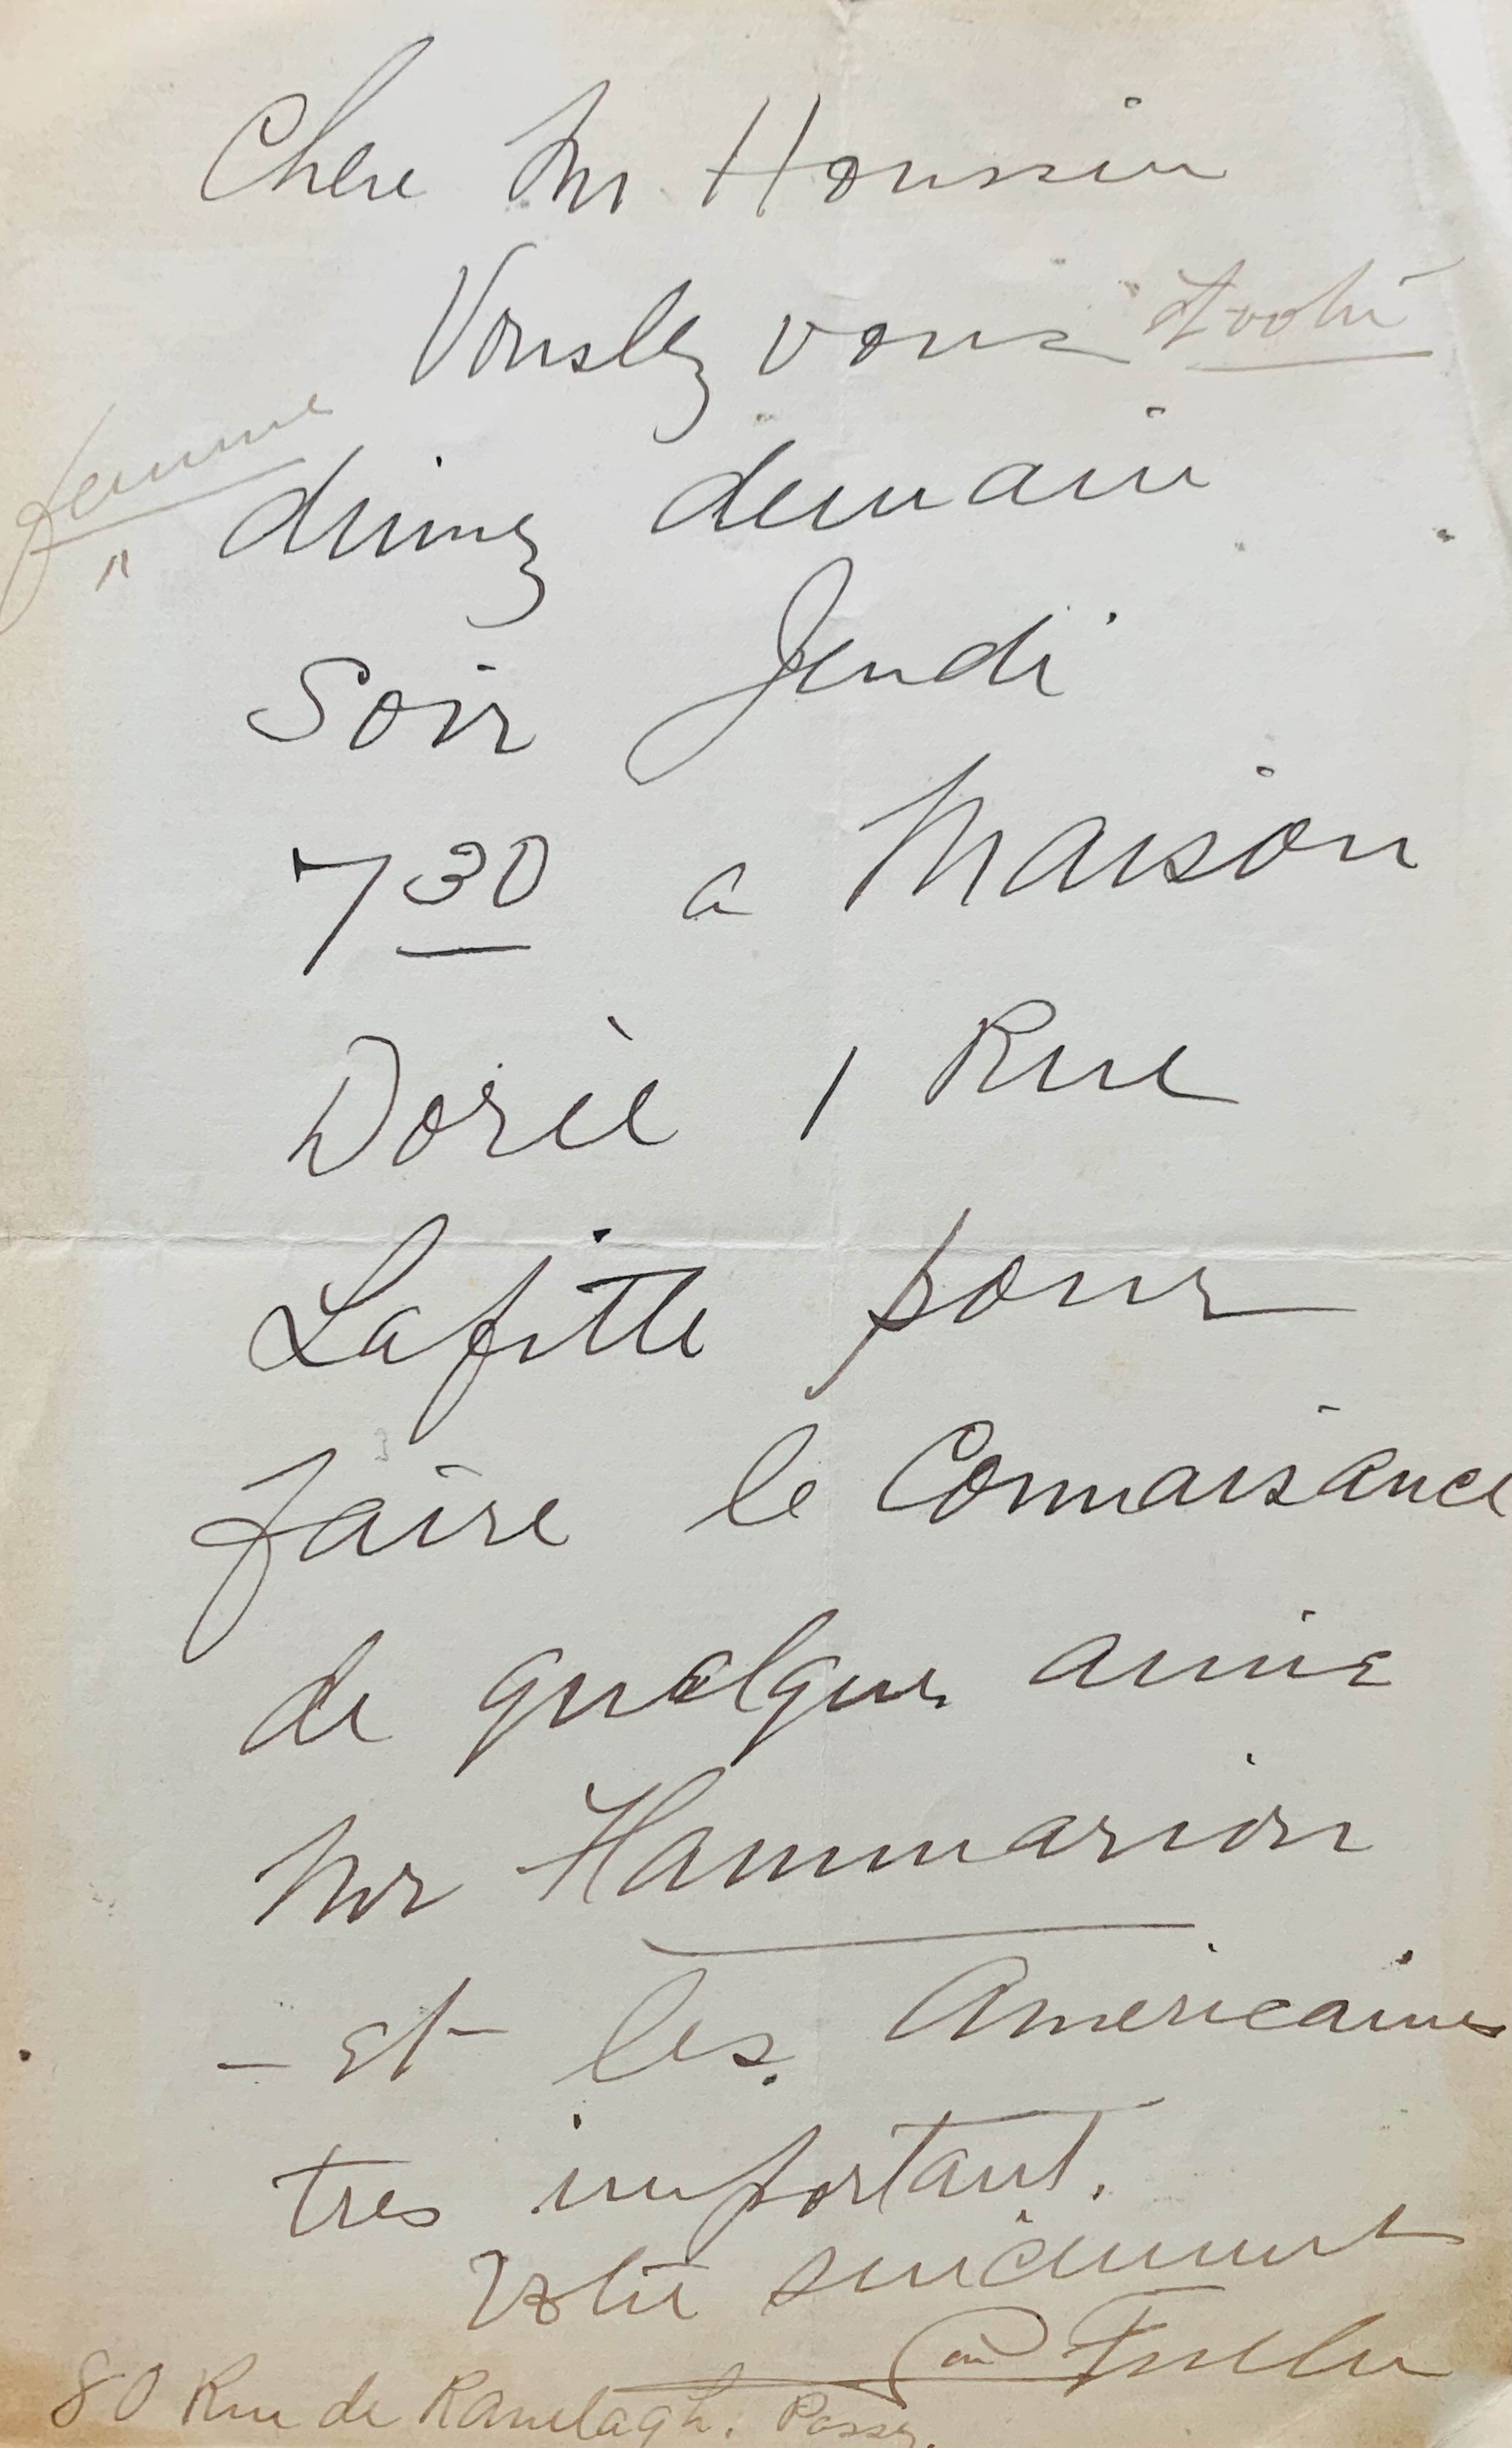 Chere Mr Houssin
Vouslez vous Votre
femme
" dinez demain
Soir Jeudi
7 30 a Maison
Dorèe 1 Rue
Lafitte pour
faire le Connaisance
de quelques amis
Mr Flammarion
- et les Americaines
tres important.
Votre sincerement
Loïe Fuller
80 Rue de Ranelagh. Passy.